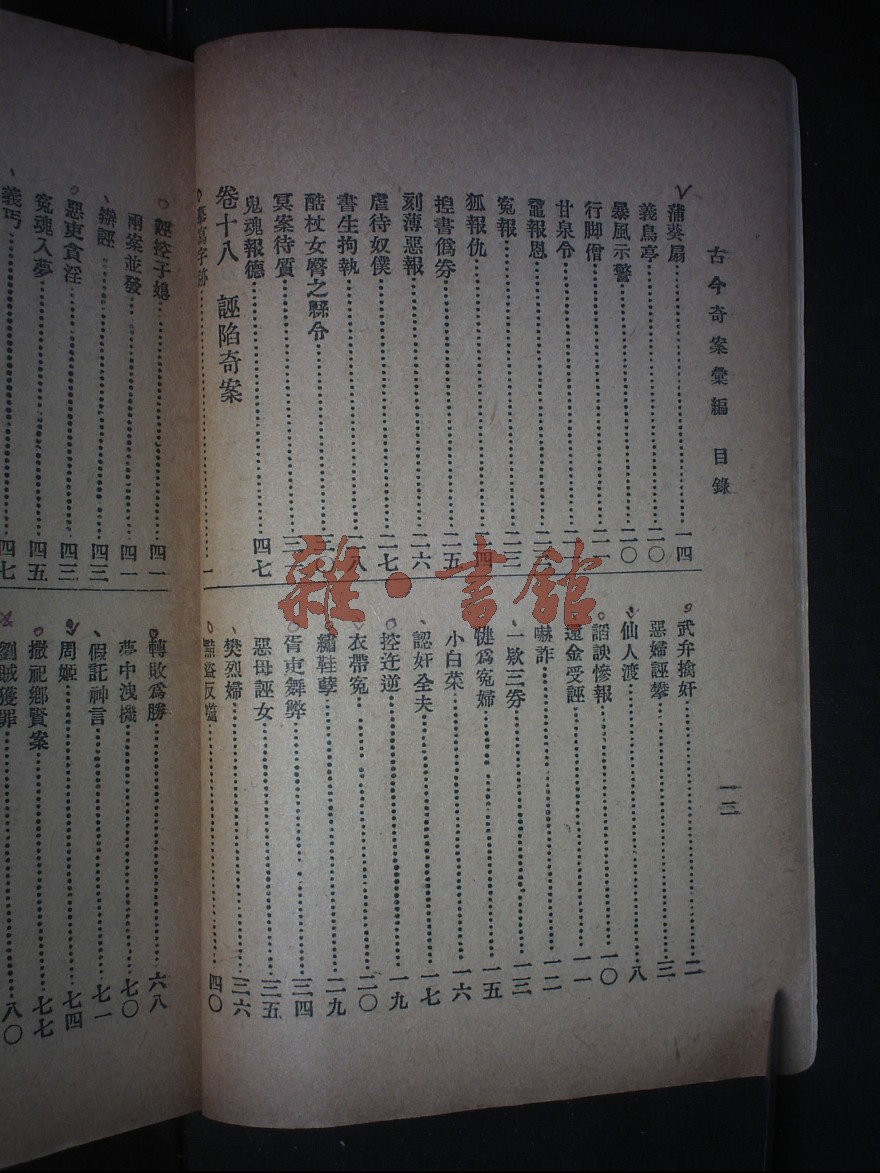 古今奇案彙編 目錄
一三
蒲葵扇 一四
義鳥亭 二〇
暴風示警 二〇
行脚僧 二一
甘泉令
黿報恩
寃報 二三
狐報仇 二四
揑書僞劵 二五
刻薄惡報 二六
虐待奴僕 二七
書生拘執 二八
酷杖女臀之縣令
冥案待質
鬼魂報德 四七
卷十八 誣陷奇案
摹寫字跡 一
武弁擒奸 二
惡婦誣攀 三
仙人渡 八
諂諛慘報 一〇
還金受誣 一一
嚇詐 一二
一欵三劵 一三
犍爲寃婦 一五
小白菜 一六
認奸全夫 一七
控迕逆 一九
衣帶寃 二〇
繡鞋孽 二九
胥吏舞弊 三四
惡母誣女 三五
樊烈婦 三六
盜反噬 四〇
誣控子媳 四一
兩案並發 四一
辦誣 四三
惡吏貪淫 四三
寃魂入夢 四五
義丐 四七
轉敗爲勝 六八
夢中洩機 七〇
假託神言 七一
周姬 七四
撤祀鄉賢案 七七
劉賊獲罪 八〇
雜·書館